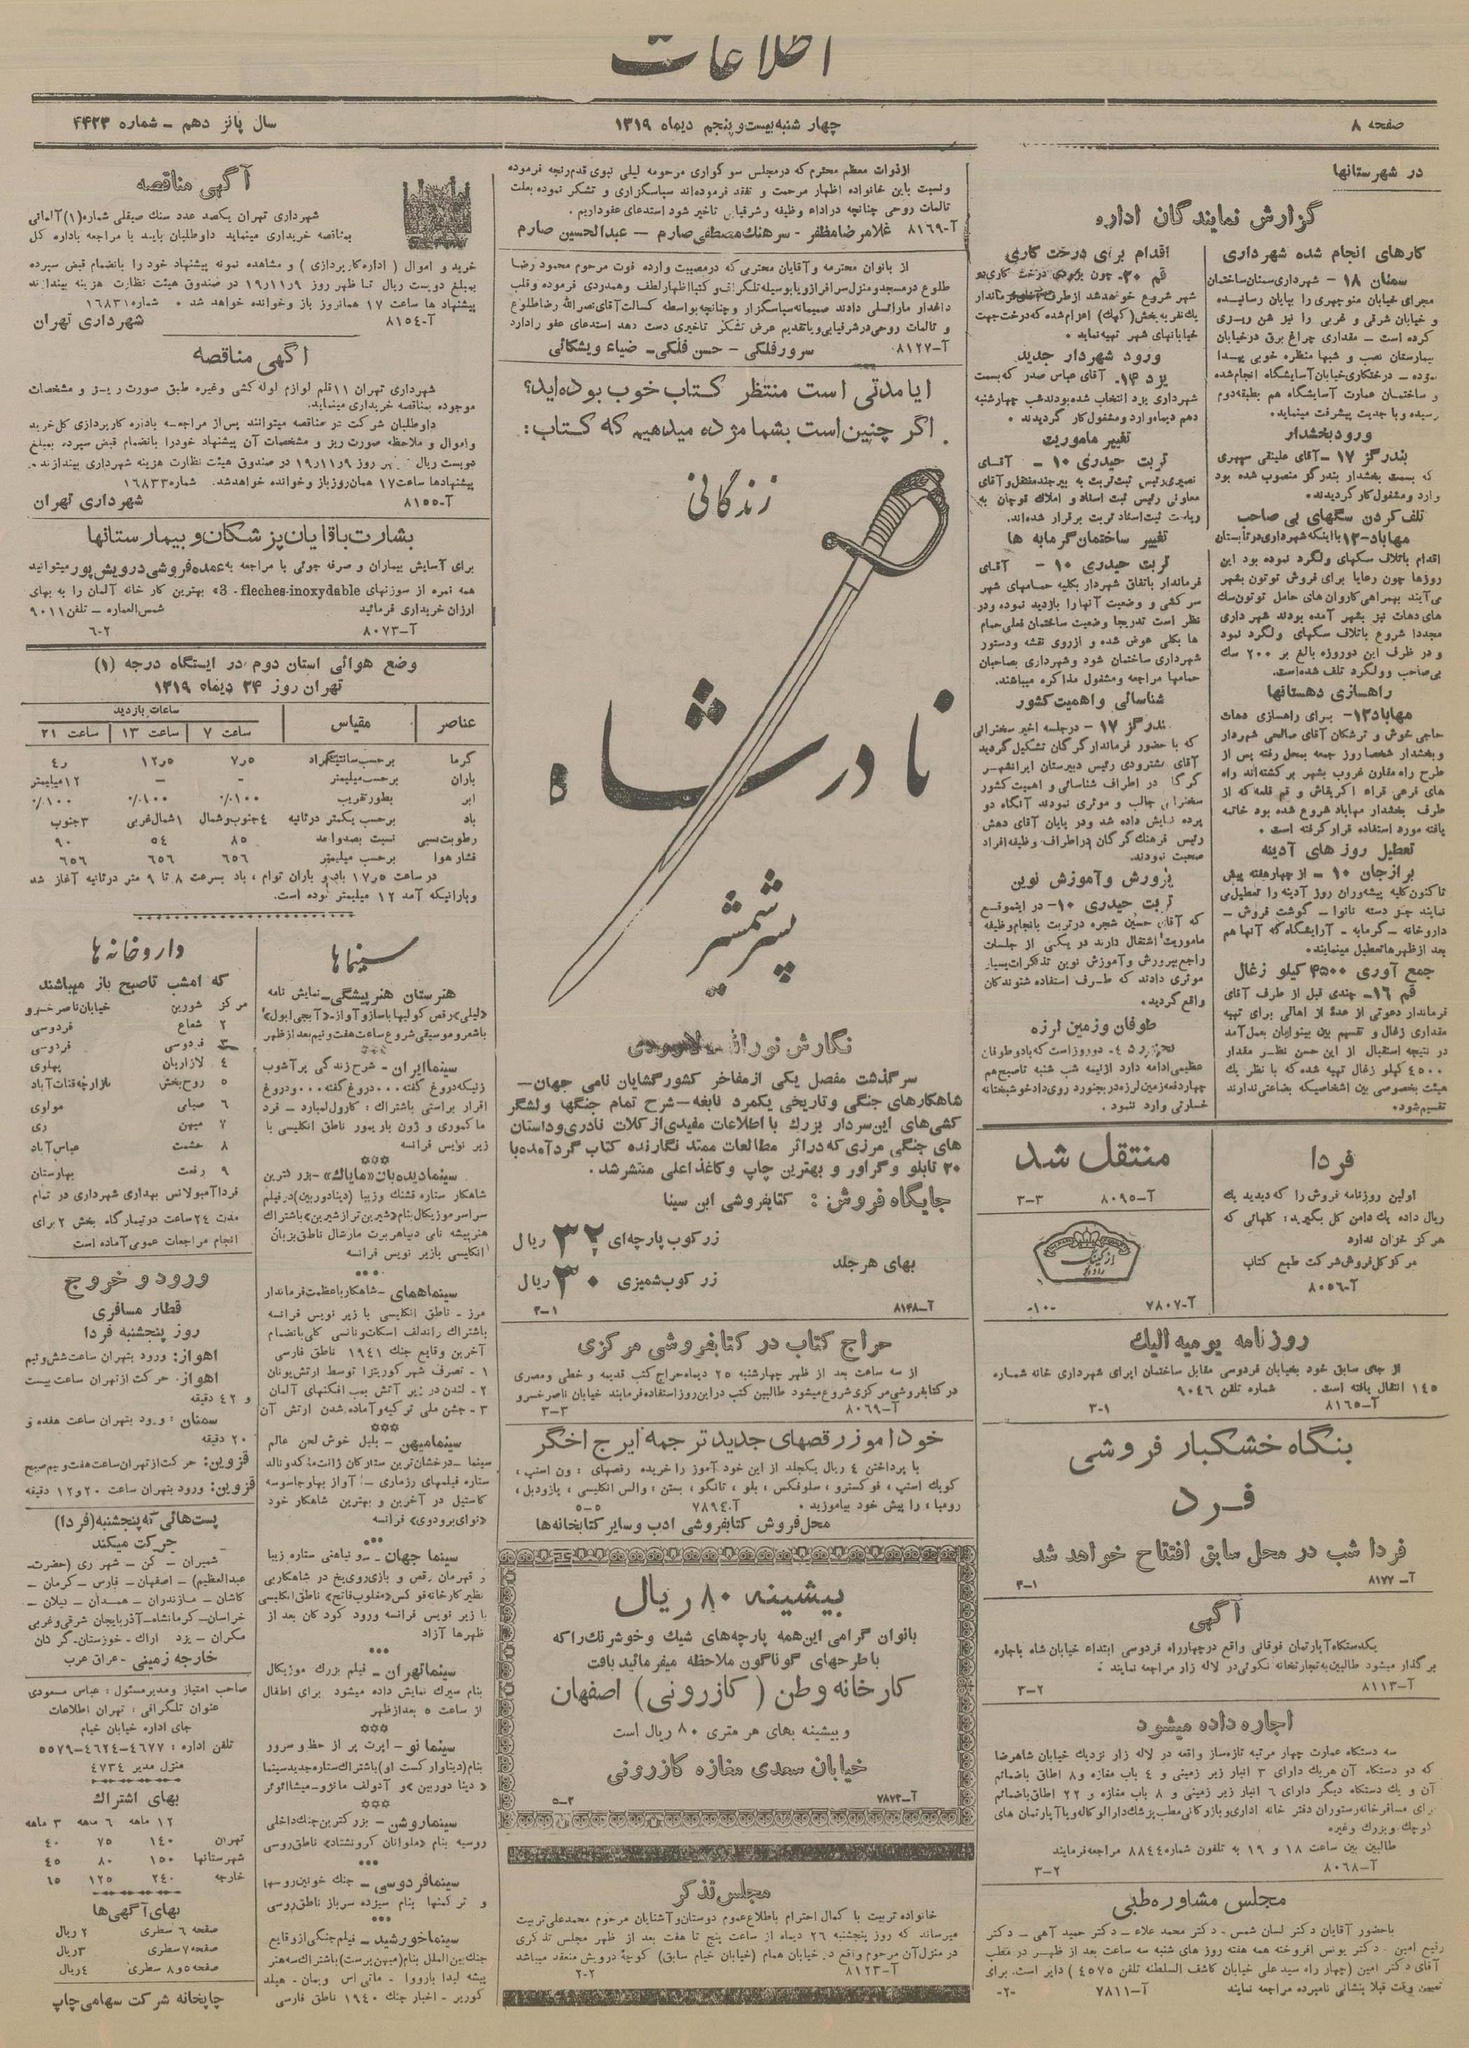 اطلاعات
صفحه ۸
چهارشنبه بیست و پنجم دیماه ۱۳۱۹
سال پانزدهم - شماره ۴۴۲۳
در شهرستانها
گزارش نمایندگان اداره
کارهای انجام شده شهرداری
سمنان ۱۸ - شهرداری سمنان ساختمان
مجرای خیابان منوچهری را بپایان رسانیده
و خیابان شرقی و غربی را نیز شن ریزی
کرده است . مقداری چراغ برق در خیابان
بیمارستان نصب و شبها منظره خوبی پیدا
نموده - درختکاری خیابان آسایشگاه انجام شده
و ساختمان عمارت آسایشگاه هم بطبقه دوم
رسیده و با جدیت پیشرفت مینماید.
ورود بخشدار
بندرگز ۱۷ - آقای علینقی سپهری
که بسمت بخشدار بندرگز منصوب شده بود
وارد و مشغول کار گردیدند.
تلف کردن سگهای بی صاحب
مهاباد-۱۳ با اینکه شهرداری در تابستان
اقدام باتلاف سگهای ولگرد نموده بود این
روزها چون رعایا برای فروش توتون بشهر
می آیند بهمراهی کاروان های حامل توتون سگ
های دهات نیز بشهر آمده بودند شهرداری
مجددا شروع باتلاف سگهای ولگرد نمود
و در ظرف این دوروزه بالغ بر ۲۰۰ سگ
بی صاحب و ولگرد تلف شده است.
راهسازی دهستانها
مهاباد ۱۳- برای راهسازی دهات
حاجی خوش و ترشکان آقای صالحی شهردار
و بخشدار شخصا روز جمعه بمحل رفته پس از
طرح راه مقارن غروب بشهر برگشته اند راه
های فرعی قراء اگریقاش و قم قلعه که از
طرف بخشدار مهاباد شروع شده بود خاتمه
یافته مورد استفاده قرار گرفته است .
تعطیل روز های آدینه
برازجان ۱۰ - از چهار هفته پیش
تا کنون کلیه پیشه وران روز آدینه را تعطیل می
نمایند جز دسته نانوا - گوشت فروش -
داروخانه - گرمابه - آرایشگاه که آنها هم
بعد از ظهرها تعطیل مینمایند.
جمع آوری ۴۵۰۰ کیلو زغال
قم ۱۶- چندی قبل از طرف آقای
فرماندار دعوتی از عده از اهالی برای تهیه
مقداری زغال و تقسیم بین بینوایان بعمل آمد
در نتیجه استقبال از این حسن نظر مقدار
۴۵۰۰ کیلو زغال تهیه شده که با نظر یک
هیئت بخصوصی بین اشخاصیکه بضاعتی ندارند
تقسیم شود.
اقدام برای درخت کاری
قم ۲۰- چون بزودی درخت کاری در
شهر شروع خواهد شد از طرف آقای فرماندار
یک نفر به بخش (کهک) اعزام شده که درخت جهت
خیابانهای شهر تهیه نماید.
ورود شهردار جدید
یزد ۱۴- آقای عباس صدر که بسمت
شهرداری یزد انتخاب شده بودند شب چهارشنبه
دهم دیماه وارد و مشغول کار گردیدند .
تغییر ماموریت
تربت حیدری ۱۰ - آقای
نصیری رئیس ثبت تربت به بیرجند منتقل و آقای
معاونی رئیس ثبت اسناد و املاک قوچان به
ریاست ثبت اسناد تربت برقرار شده اند.
تغییر ساختمان گرمابه ها
تربت حیدری ۱۰ - آقای
فرماندار باتفاق شهردار بکلیه حمامهای شهر
سرکشی و وضعیت آنها را بازدید نموده و در
نظر است تدریجا وضعیت ساختمان فعلی حمام
ها بکلی عوض شده و از روی نقشه و دستور
شهرداری ساختمان شود و شهرداری بصاحبان
حمامها مراجعه و مشغول مذاکره میباشند.
شناسائی و اهمیت کشور
بندرگز ۱۷ - در جلسه اخیر سخنرانی
که با حضور فرماندار گرگان تشکیل گردید
آقای بشترودی رئیس دبیرستان ایرانشهر
گرگان در اطراف شناسائی و اهمیت کشور
سخنرانی جالب و موثری نمودند آنگاه دو
پرده نمایش داده شد و در پایان آقای دهش
رئیس فرهنگ گرگان در اطراف وظیفه افراد
صحبت نمودند.
پرورش و آموزش نوین
تربت حیدری ۱۰- در اینموقع
که آقای حسین شجره در تربت بانجام وظیفه
ماموریت اشتغال دارند در یکی از جلسات
راجع بپرورش و آموزش نوین تذکرات بسیار
موثری دادند که طرف استفاده شنوندگان
واقع گردید.
طوفان و زمین لرزه
دوروز است که باد و طوفان
عظیمی ادامه دارد از نیمه شب شنبه تا صبح هم
چهار دفعه زمین لرزه در بجنورد روی داد خوشبختانه
خسارتی وارد ننمود.
فردا
اولین روزنامه فروش را که دیدید یک
ریال داده یک دامن گل بگیرید: گلهائی که
هرگز خزان ندارد
مرکز کل فروش شرکت طبع کتاب
آ-۸۰۵۶
منتقل شد
آ-۸۰۹۵ ۳-۳
آ-۷۸۰۷ -۱۰-
روزنامه یومیه الیک
از جای سابق خود بخیابان فردوسی مقابل ساختمان اپرای شهرداری خانه شماره
۱۴۵ انتقال یافته است . شماره تلفن ۹۰۴۶
آ-۸۱۶۵ ۳-۱
بنگاه خشکبار فروشی
فرد
فردا شب در محل سابق افتتاح خواهد شد
آ-۸۱۷۷ ۴-۱
آگهی
یکدستگاه آپارتمان فوقانی واقع در چهارراه فردوسی ابتداء خیابان شاه باجاره
برگذار میشود طالبین به تجارتخانه نکوئی در لاله زار مراجعه نمایند .
آ-۸۱۱۳ ۳-۲
اجاره داده میشود
سه دستگاه عمارت چهار مرتبه تازه ساز واقعه در لاله زار نزدیک خیابان شاهرضا
که دو دستگاه آن هریک دارای ۳ انبار زیر زمینی و ۴ باب مغازه و ۸ اطاق باضمائم
آن و یک دستگاه دیگر دارای ۶ انبار زیر زمینی و ۸ باب مغازه و ۲۲ اطاق باضمائم
برای مسافرخانه رستوران دفتر خانه اداری و بازرگانی مطب پزشک دارالوکاله و یا آپارتمان های
کوچک و بزرگ و غیره
طالبین بین ساعت ۱۸ و ۱۹ به تلفون شماره ۸۸۴۴ مراجعه فرمایند
آ-۸۰۶۸ ۳-۲
مجلس مشاوره طبی
باحضور آقایان دکتر لسان شمس - دکتر محمد علاء - دکتر حمید آهی - دکتر
رفیع امین - دکتر یونس افروخته همه هفته روز های شنبه سه ساعت بعد از ظهر در مطب
آقای دکتر امین (چهار راه سید علی خیابان کاشف السلطنه تلفن ۴۵۷۵ ) دایر است. برای
تعیین وقت قبلا بنشانی نامبرده مراجعه نمایند آ-۷۸۱۱ -۲-
از ذوات معظم محترم که در مجلس سوگواری مرحومه لیلی نبوی قدم رنجه فرموده
و نسبت باین خانواده اظهار مرحمت و تفقد فرموده اند سپاسگزاری و تشکر نموده بعلت
تالمات روحی چنانچه در اداء وظیفه و شرفیابی تاخیر شود استدعای عفو داریم.
آ-۸۱۶۹ غلامرضا مظفر - سرهنگ مصطفی صارم - عبدالحسین صارم
از بانوان محترمه و آقایان محترمی که در مصیبت وارده فوت مرحوم محمود رضا
طلوع در مسجد و منزل سرافراز و یا بوسیله تلگراف و کتبا اظهار لطف و همدردی فرموده و قلب
داغدار ما را تسلی دادند صمیمانه سپاسگزار و چنانچه بواسطه کسالت آقای نصرالله رضا طلوع
و تالمات روحی در شرفیابی و یا تقدیم عرض تشکر تاخیری دست دهد استدعای عفو را دارد
آ-۸۱۲۷ سرور فلکی - حسن فلکی - ضیاء ویشکائی
آیا مدتی است منتظر کتاب خوب بوده اید؟
اگر چنین است بشما مژده میدهیم که کتاب:
زندگانی
نادرشاه
پسر شمشیر
نگارش نورالله لارودی
سرگذشت مفصل یکی از مفاخر کشورگشایان نامی جهان-
شاهکارهای جنگی و تاریخی یکمرد نابغه-شرح تمام جنگها و لشگر
کشی های این سردار بزرک با اطلاعات مفیدی از کلات نادری و داستان
های جنگی مرزی که در اثر مطالعات ممتد نگارنده کتاب گرد آمده با
۲۰ تابلو و گراور و بهترین چاپ و کاغذ اعلی منتشر شد.
جایگاه فروش : کتابفروشی ابن سینا
بهای هر جلد
زرکوب پارچه ای ۳۲ ریال
زر کوب شمیزی ۳۰ ریال
آ-۸۱۴۸ ۲-۱
حراج کتاب در کتابفروشی مرکزی
از سه ساعت بعد از ظهر چهارشنبه ۲۵ دیماه حراج کتب قدیمه و خطی و مصری
در کتابفروشی مرکزی شروع میشود طالبین کتب در این روز استفاده فرمایند خیابان ناصر خسرو
آ-۸۰۶۹ ۳-۳
خودآموز رقصهای جدید ترجمه ایرج اخگر
با پرداختن ۴ ریال یکجلد از این خود آموز را خریده رقصهای : ون استپ ،
کویک استپ ، فوکسترو ، سلوفکس ، بلو ، تانگو ، بستن : والس انگلیسی ، پازودبل ،
رومبا ، را پیش خود بیاموزید . آ-۷۸۹۴ ۵-۵
محل فروش کتابفروشی ادب و سایر کتابخانه ها
بیشینه ۸۰ ریال
بانوان گرامی این همه پارچه های شیک و خوشرنگ را که
با طرحهای گوناگون ملاحظه میفرمائید بافت
کارخانه وطن ( کازرونی ) اصفهان
و بیشینه بهای هر متری ۸۰ ریال است
خیابان سعدی مغازه کازرونی
آ-۷۸۷۲ ۵-۲
مجلس تذکر
خانواده تربیت با کمال احترام باطلاع عموم دوستان و آشنایان مرحوم محمد علی تربیت
میرساند که روز پنجشنبه ۲۶ دیماه از ساعت پنج تا هفت بعد از ظهر مجلس تذکری
در منزل آن مرحوم واقع در خیابان همام (خیابان خیام سابق) کوچه درویش منعقد میباشد
آ-۸۱۲۳ ۲-۲
آگهی مناقصه
شهرداری تهران یکصد عدد سنگ صیقلی شماره (۱) آلمانی
بمناقصه خریداری مینماید داوطلبان باید با مراجعه باداره کل
خرید و اموال ( اداره کارپردازی ) و مشاهده نمونه پیشنهاد خود را بانضمام قبض سپرده
بمبلغ دویست ریال تا ظهر روز ۱۹/۱۱/۹ در صندوق هیئت نظارت هزینه بیندازند
پیشنهاد ها ساعت ۱۷ همانروز باز و خوانده خواهد شد . شماره ۱۶۸۳۱
آ-۸۱۵۴ شهرداری تهران
آگهی مناقصه
شهرداری تهران ۱۱ قلم لوازم لوله کشی وغیره طبق صورت ریز و مشخصات
موجوده بمناقصه خریداری مینماید.
داوطلبان شرکت در مناقصه میتوانند پس از مراجعه باداره کارپردازی کل خرید
و اموال و ملاحظه صورت ریز و مشخصات آن پیشنهاد خود را بانضمام قبض سپرده بمبلغ
دویست ریال تا ظهر روز ۱۹/۱۱/۹ در صندوق هیئت نظارت هزینه شهرداری بیندازند.
پیشنهادها ساعت ۱۷ همان روز باز و خوانده خواهد شد. شماره ۱۶۸۳۳
آ-۸۱۵۵ شهرداری تهران
بشارت باقایان پزشکان و بیمارستانها
برای آسایش بیماران و صرفه جوئی با مراجعه به عمده فروشی درویش پور میتوانید
همه نمره از سوزنهای 3 - fleches-inoxydable بهترین کار خانه آلمان را به بهای
ارزان خریداری فرمائید شمس العماره - تلفن ۹۰۱۱
آ-۸۰۷۳ ۶-۲
وضع هوائی استان دوم در ایستگاه درجه (۱)
تهران روز ۲۴ دیماه ۱۳۱۹
عناصر مقیاس ساعات بازدید
ساعت ۷ ساعت ۱۳ ساعت ۲۱
گرما برحسب سانتیگراد ۷٫۵ ۱۲٫۵ ۴٫
باران برحسب میلیمتر - - ۱۲ میلیمتر
ابر بطور تقریب ۱۰۰٪ ۱۰۰٪ ۱۰۰٪
باد برحسب یکمتر در ثانیه ۴ جنوب و شمال ۱ شمال غربی ۳ جنوب
رطوبت نسبی نسبت بصد واحد ۸۵ ۵۴ ۹۰
فشار هوا برحسب میلیمتر ۶۵۶ ۶۵۶ ۶۵۶
در ساعت ۱۷٫۵ باد و باران توام ، باد بسرعت ۸ تا ۹ متر در ثانیه آغاز شد
و بارانیکه آمد ۱۲ میلیمتر بوده است.
سینما ها
هنرستان هنرپیشگی - نمایش نامه
«لیلی» رقص کولیها با ساز و آواز - «آبجی ابول»
باشعر و موسیقی شروع ساعت هفت و نیم بعد از ظهر
سینما ایران - شرح زندگی پر آشوب
زنیکه دروغ گفته ... دروغ گفته ... و دروغ
اقرار براستی باشتراک : کارول لمبارد - فرد
ماکموری و ژون باریمور ناطق انگلیسی با
زیر نویس فرانسه
سینما دیده بان «مایاک» - بزرگترین
شاهکار ستاره قشنگ و زیبا (دینادوربین) در فیلم
سراسر موزیکال بنام «شیرین تر از شیرین» باشتراک
هنرپیشه نامی دنیا هربرت مارشال ناطق بزبان
انگلیسی بازیر نویس فرانسه
سینما همای - شاهکار باعظمت فرماندار
مرز - ناطق انگلیسی با زیر نویس فرانسه
باشتراک راندلف اسکات و نانسی کلی بانضمام
آخرین وقایع جنگ ۱۹۴۱ ناطق فارسی
۱ - تصرف شهر کوریتزا توسط ارتش یونان
۲ - لندن در زیر آتش بمب افکنهای آلمان
۳ - جشن ملی ترکیه و آماده شدن ارتش آن
سینما میهن - بلبل خوش لحن عالم
سینما - درخشان ترین ستارگان ژانت ماکدونالد
ستاره فیلمهای رزماری - آواز بهار و جاسوسه
کاستیل در آخرین و بهترین شاهکار خود
«نوای برودوی» فرانسه
سینما جهان - سونیاهنی ستاره زیبا
و قهرمان رقص و بازی روی یخ در شاهکار بی
نظیر کارخانه فوکس «مغلوب فاتح» ناطق انگلیسی
با زیر نویس فرانسه ورود کودکان بعد از
ظهرها آزاد
سینما تهران - فیلم بزرگ موزیکال
بنام سیرک نمایش داده میشود برای اطفال
از ساعت ۵ بعد از ظهر
سینما نو - اپرت پر از حظ و سرور
بنام (دیناوارکت او) باشتراک ستاره جدید سینما
«دینا دوربین» و آدولف مانژو - میشا آئوئر
سینما روشن - بزرگترین جنگ داخلی
روسیه بنام «ملوانان کرونشتاد» ناطق روسی
سینما فردوسی - جنگ خونین روسها
و ترکمنها بنام سیزده سرباز ناطق روسی
سینما خورشید - فیلم جنگی از وقایع
جنگ بین الملل بنام (میهن پرست) باشتراک سه هنر
پیشه لیدا بارووا - ماتی اس ویمان - هیلد
کوربر - اخبار جنگ ۱۹۴۰ ناطق فارسی
داروخانه ها
که امشب تا صبح باز میباشند
مرکز شورین خیابان ناصر خسرو
۲ شعاع فردوسی
۳ فردوسی فردوسی
۴ لازاریان پهلوی
۵ روح بخش بازارچه قنات آباد
۶ صبائی مولوی
۷ میهن ری
۸ حشمت عباس آباد
۹ رفعت بهارستان
فردا آمبولانس بهداری شهرداری در تمام
مدت ۲۴ ساعت در تیمارگاه بخش ۲ برای
انجام مراجعات عمومی آماده است
ورود و خروج
قطار مسافری
روز پنجشنبه فردا
اهواز: ورود بتهران ساعت شش و نیم
اهواز: حرکت از تهران ساعت بیست
و ۴۲ دقیقه
سمنان : ورود بتهران ساعت هفده و
۲۰ دقیقه
قزوین: حرکت از تهران ساعت هفت و نیم صبح
قزوین: ورود بتهران ساعت ۲۰ و ۱۲ دقیقه
پست هائی که پنجشنبه (فردا)
حرکت میکند
شمیران - کن - شهر ری (حضرت-
عبدالعظیم) - اصفهان - فارس - کرمان -
کاشان - مازندران - همدان - گیلان -
خراسان - کرمانشاه - آذربایجان شرقی و غربی
مکران - یزد - اراک - خوزستان - گرگان
خارجه زمینی - عراق عرب
صاحب امتیاز و مدیر مسئول : عباس مسعودی
عنوان تلگرافی : تهران اطلاعات
جای اداره خیابان خیام
تلفن اداره : ۴۶۷۷-۴۶۲۴-۵۵۷۹
منزل مدیر ۴۷۳۴
بهای اشتراک
۱۲ ماهه ۶ ماهه ۳ ماهه
تهران ۱۴۰ ۷۵ ۴۰
شهرستانها ۱۵۰ ۸۰ ۴۵
خارجه ۲۴۰ ۱۲۵ ۶۵
بهای آگهی ها
صفحه ۶ سطری ۲ ریال
صفحه ۷ سطری ۳ ریال
صفحه ۵ و ۸ سطری ۴ ریال
چاپخانه شرکت سهامی چاپ